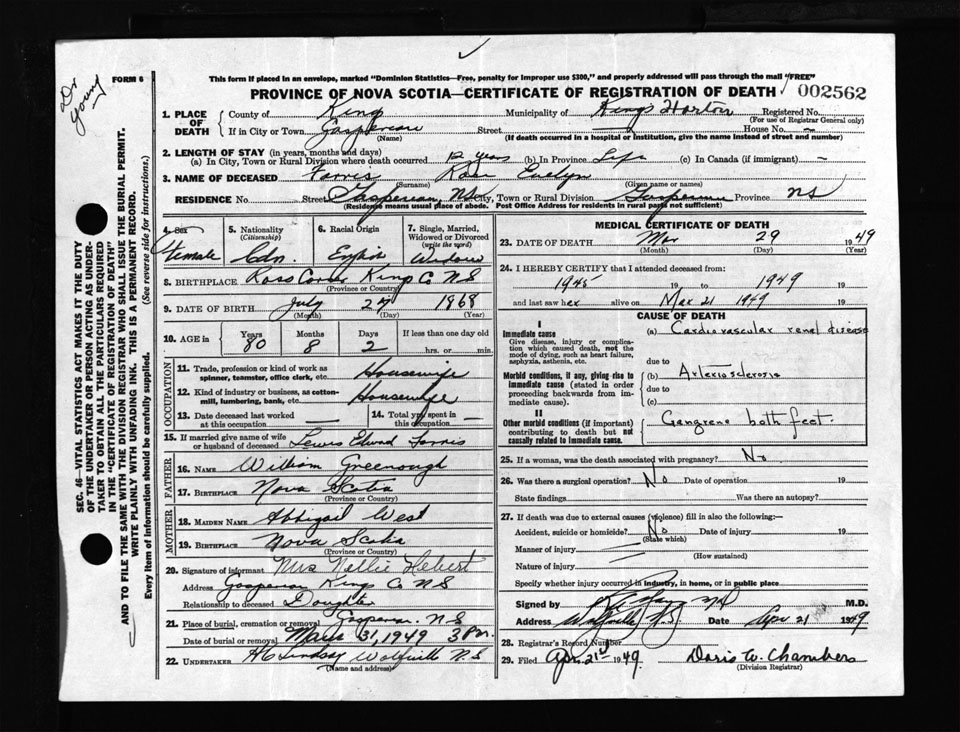 Dr Young
FORM 6
This form if placed in an envelope, marked "Dominion Statistics—Free, penalty for improper use $300," and properly addressed will pass through the mail "FREE"
PROVINCE OF NOVA SCOTIA—CERTIFICATE OF REGISTRATION OF DEATH 002562
SEC. 46—VITAL STATISTICS ACT MAKES IT THE DUTY
OF THE UNDERTAKER OR PERSON ACTING AS UNDER-
TAKER TO OBTAIN ALL THE PARTICULARS REQUIRED
IN THE "CERTIFICATE OF REGISTRATION OF DEATH"
AND TO FILE THE SAME WITH THE DIVISION REGISTRAR WHO SHALL ISSUE THE BURIAL PERMIT.
WRITE PLAINLY WITH UNFADING INK. THIS IS A PERMANENT RECORD.
Every item of information should be carefully supplied. (See reverse side for instructions.)
1. PLACE OF DEATH
County of King Municipality of Kings Horton Registered No.
(For use of Registrar General only)
If in City or Town Gaspereau Street — House No. —
(Name) (If death occurred in a hospital or institution, give the name instead of street and number)
2. LENGTH OF STAY (in years, months and days)
(a) In City, Town or Rural Division where death occurred 12 years (b) In Province Life (c) In Canada (if immigrant) —
3. NAME OF DECEASED Farris Rose Evelyn
(Surname) (Given name or names)
RESIDENCE No. Street Gaspereau, NS City, Town or Rural Division Gaspereau Province NS
(Residents means usual place of abode. Post Office Address for residents in rural parts not sufficient)
4. Sex
female
5. Nationality
(Citizenship)
Cdn.
6. Racial Origin
English
7. Single, Married, Widowed or Divorced
(write the word)
Widow
8. BIRTHPLACE Ross Corner King Co NS
(Province or Country)
9. DATE OF BIRTH July 27 1868
(Month) (Day) (Year)
10. AGE in Years Months Days If less than one day old
80 8 2 hrs. or min.
OCCUPATION
11. Trade, profession or kind of work as
spinner, teamster, office clerk, etc. Housewife
12. Kind of industry or business, as cotton-
mill, lumbering, bank, etc. Housewife
13. Date deceased last worked
at this occupation —
14. Total yrs. spent in
this occupation —
15. If married give name of wife
or husband of deceased Lewis Edward Farris
FATHER
16. NAME William Greenough
17. BIRTHPLACE Nova Scotia
(Province or Country)
MOTHER
18. MAIDEN NAME Abbigail West
19. BIRTHPLACE Nova Scotia
(Province or Country)
20. Signature of informant Mrs Nellie Hebert
Address Gaspereau Kings Co NS
Relationship to deceased Daughter
21. Place of burial, cremation or removal Gaspereau. N.S
Date of burial or removal March 31, 1949 3 P.m.
22. UNDERTAKER H C Lindsay Wolfville N.S
(Name and address)
MEDICAL CERTIFICATE OF DEATH
23. DATE OF DEATH Mar 29 1949
(Month) (Day) (Year)
24. I HEREBY CERTIFY that I attended deceased from:
1945 19 to 1949 19
and last saw her alive on Mar 21 1949 19
CAUSE OF DEATH
I
Immediate cause
Give disease, injury or complica-
tion which caused death, not the
mode of dying, such as heart failure,
asphyxia, asthenia, etc.
(a) Cardiovascular renal disease
due to
Morbid conditions, if any, giving rise to
immediate cause (stated in order
proceeding backwards from im-
mediate cause).
(b) Arteriosclerosis
due to
(c)
II
Other morbid conditions (if important)
contributing to death but not
causally related to immediate cause.
Gangrene both feet.
25. If a woman, was the death associated with pregnancy? No
26. Was there a surgical operation? No Date of operation 19
State findings Was there an autopsy?
27. If death was due to external cause (violence) fill in also the following:—
Accident, suicide or homicide? No Date of injury 19
(State which)
Manner of injury
(How sustained)
Nature of injury
Specify whether injury occurred in industry, in home, or in public place
Signed by M.D.
Address Wolfville N.S. Date Apr 21 1949
28. Registrar's Record Number
29. Filed Apr. 21st 1949 Doris W. Chambers
(Division Registrar)